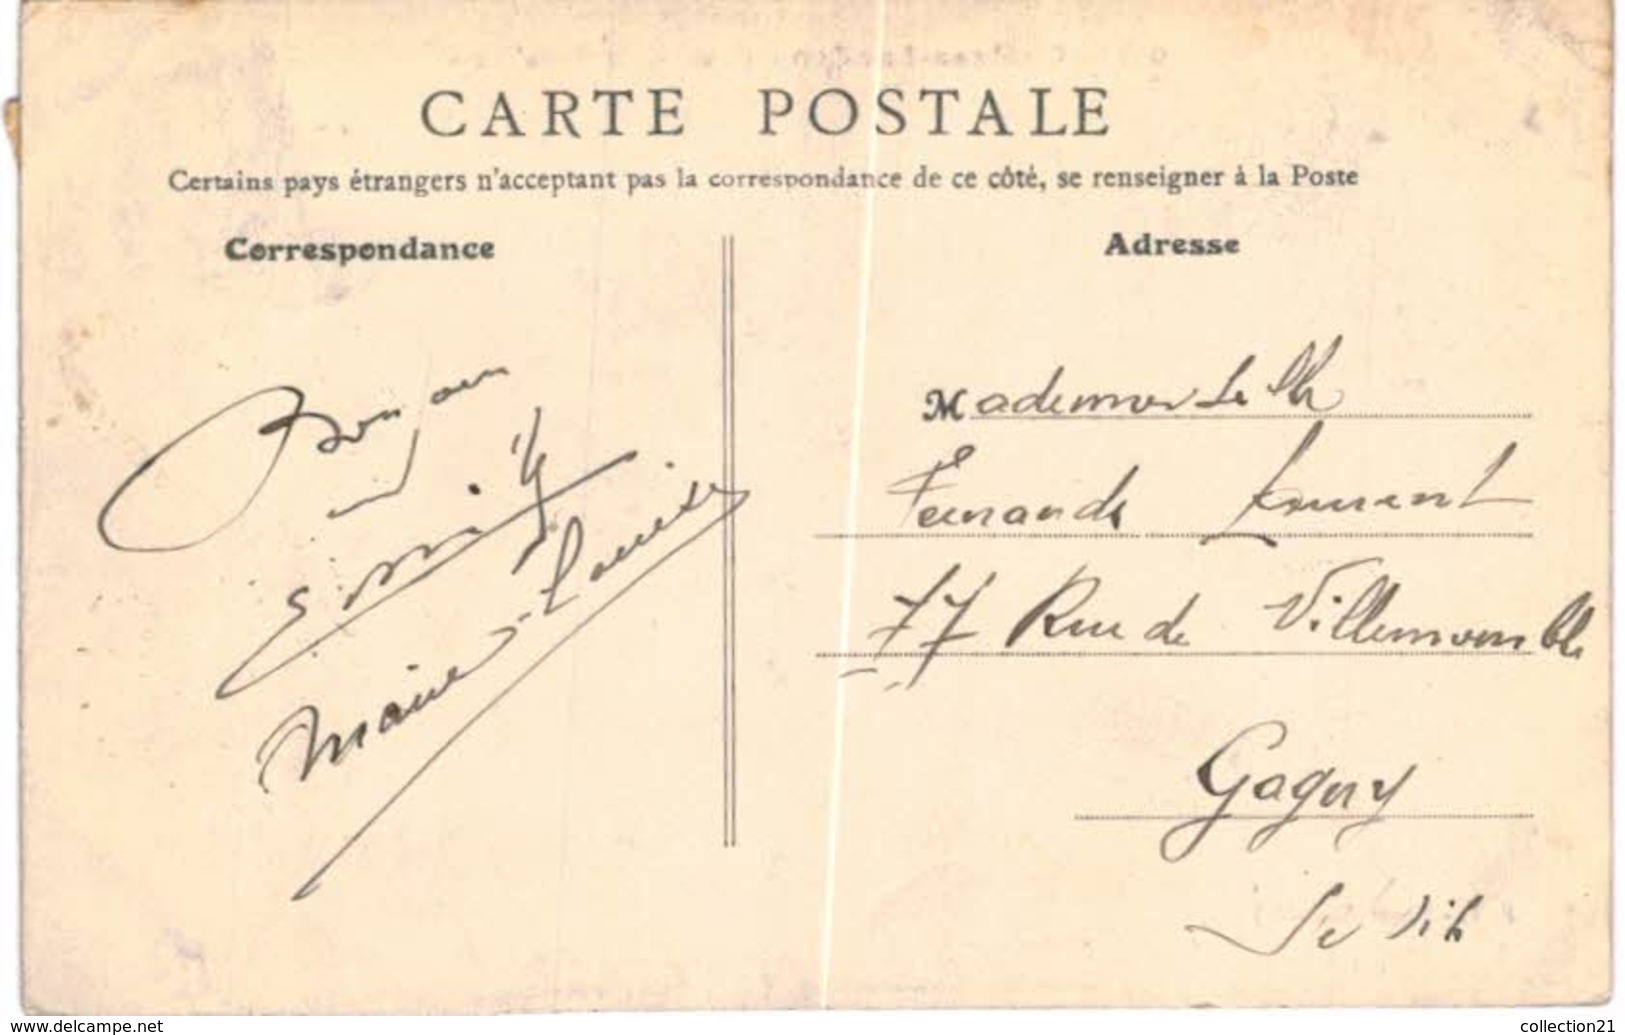 CARTE POSTALE
Certains pays étrangers n'acceptant pas la correspondance de ce côté, se renseigner à la Poste
Correspondance
Adresse
Bonjour
Marie-Louise
Mademoiselle
Fernande
77 Rue de Villemomble
Gagny
www.delcampe.net
collection21